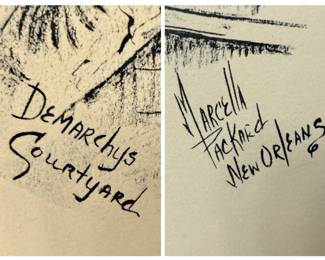 DeMarchys
Courtyard
Marcella
Packard
New Orleans